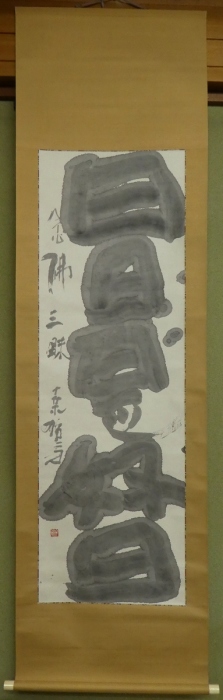 日日是好日
念佛三昧